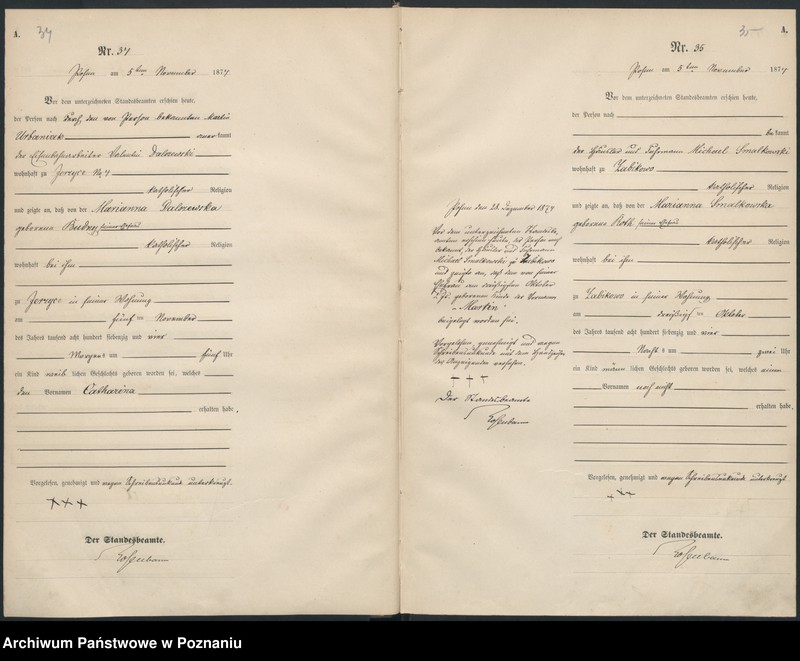 A. 34
Nr. 34
Posen am 5ten November 1874
Vor dem unterzeichneten Standesbeamten erschien heute,
der Person nach durch den von Person bekannten Martin
Urbaniak anerkannt
der Eisenbahnarbeiter Valentin Dalewski
wohnhaft zu Jerzyce No 4
katholischer Religion
und zeigte an, daß von der Marianna Dalewska
geborenen Budny, seiner Ehefrau
katholischer Religion
wohnhaft bei ihm
zu Jerzyce in seiner Wohnung
am fünften November
des Jahres tausend acht hundert siebenzig und vier
Morgens um fünf Uhr
ein Kind weiblichen Geschlechts geboren worden sei, welches
den Vornamen Catharina
erhalten habe.
Vorgelesen, genehmigt und wegen Schreibensunkunde unterkreuzt.
+++
Der Standesbeamte.
35 A.
Nr. 35
Posen am 5ten November 1874
Vor dem unterzeichneten Standesbeamten erschien heute,
der Person nach
bekannt
der Häusler und Fuhrmann Michael Smalkowski
wohnhaft zu Zabikowo
katholischer Religion
und zeigte an, daß von der Marianna Smalkowska
geborenen Roth seiner Ehefrau
katholischer Religion
wohnhaft bei ihm
zu Zabikowo in seiner Wohnung
am dreißigsten Oktober
des Jahres tausend acht hundert siebenzig und vier
Nachts um zwei Uhr
ein Kind männlichen Geschlechts geboren worden sei, welches einen
Vornamen noch nicht
erhalten habe.
Vorgelesen, genehmigt und wegen Schreibensunkunde unterkreuzt
+++
Der Standesbeamte.
Posen den 28. Dezember 1874
Vor dem unterzeichneten Standesbeamten erschien heute, der Person nach
bekannt, der Häusler und Fuhrmann
Michael Smalkowski zu Zabikowo
und zeigte an, daß dem von seiner
Ehefrau am dreißigsten Oktober
geborenen Kinde der Vorname
"Martin"
beigelegt worden sei.
Vorgelesen genehmigt und wegen
Schreibensunkunde mit dem Handzeichen
des Anzeigenden versehen.
+++
Der Standesbeamte
Archiwum Państwowe w Poznaniu